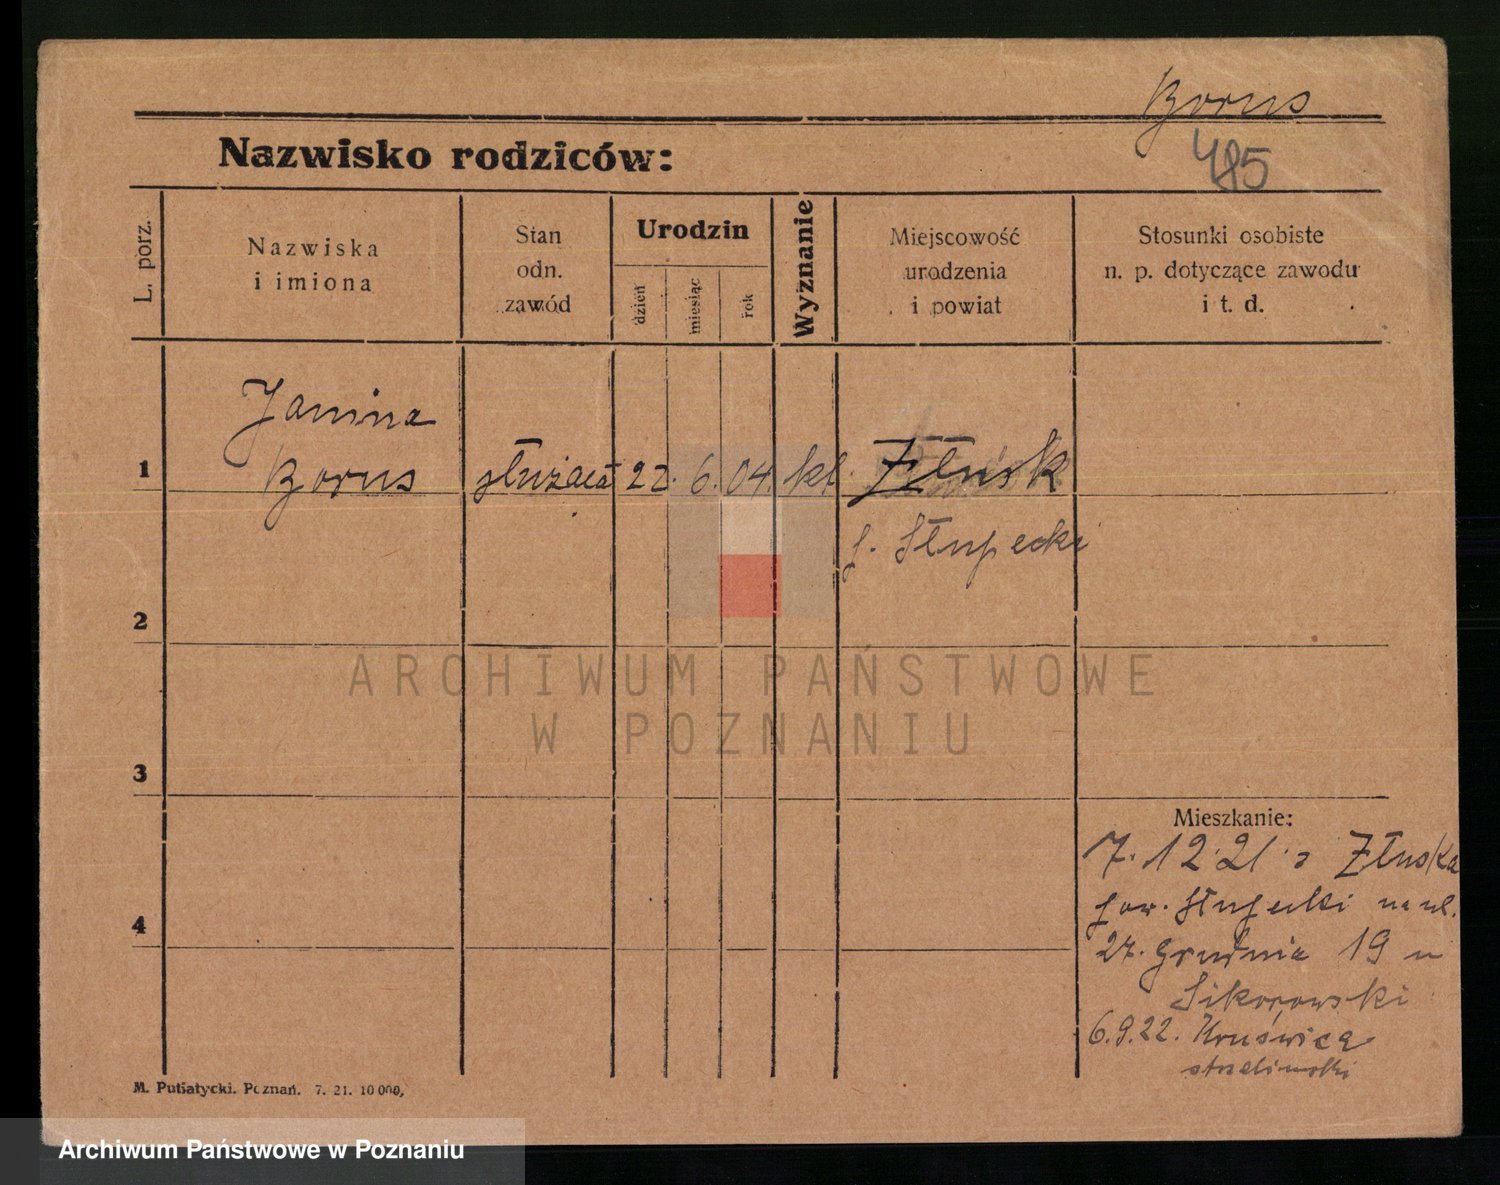 Borus
485
Nazwisko rodziców:
L. porz.
Nazwiska
i imiona
Stan
odn.
zawód
Urodzin
dzień
miesiąc
rok
Wyznanie
Miejscowość
urodzenia
i powiat
Stosunki osobiste
n. p. dotyczące zawodu
i t. d.
Janina
1 Borus służąca 22. 6. 04. kt. Złusk
p. Słupecki
2
3
4
ARCHIWUM PAŃSTWOWE
W POZNANIU
Mieszkanie:
7.12.21 z Złuska
pow. Słupecki na ul.
27. Grudnia 19 u
Sikorowski
6.9.22. Kruświcą
strzelinski
M. Putiatycki. Poznań. 7. 21. 10000,
Archiwum Państwowe w Poznaniu